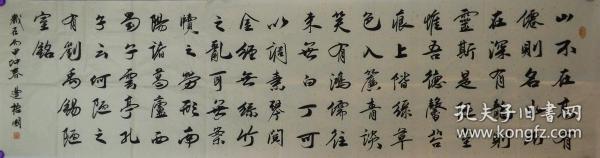 山不在高有
僊則名水不
在深有龍則
靈斯是陋室
惟吾德馨苔
痕上階綠草
色入簾青談
笑有鴻儒往
來無白丁可
以調素琴閱
金經無絲竹
之亂耳無案
牘之勞形南
陽諸葛廬西
蜀子雲亭孔
子云何陋之
有劉禹錫陋
室銘
歲在丙申仲春
孔夫子旧书网
kongfz.com